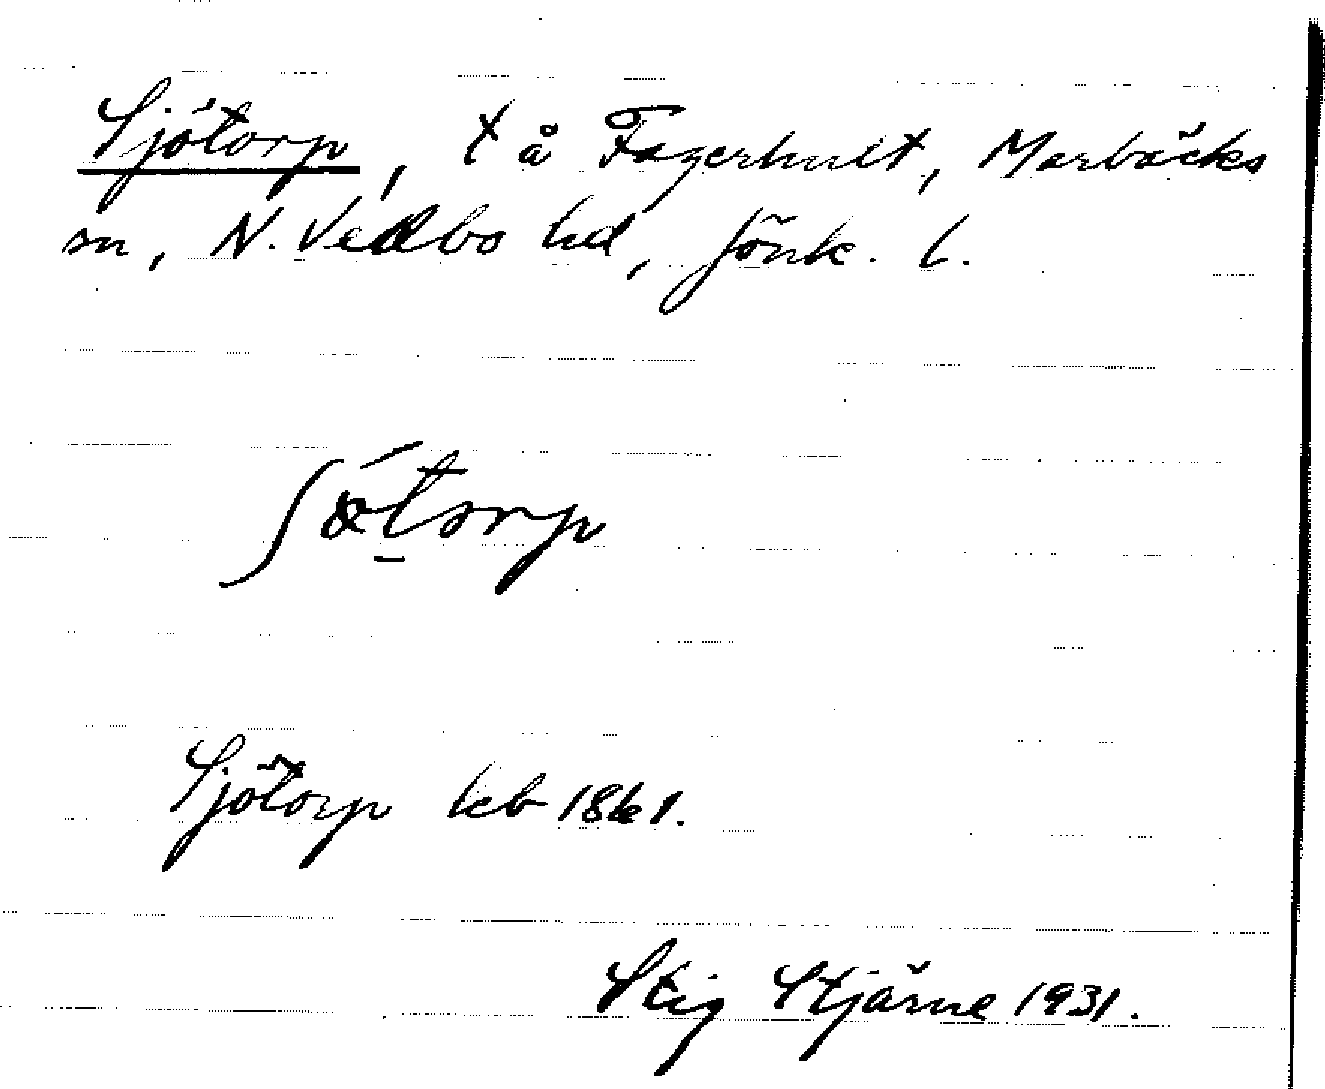 Sjötorp, t å Fagerhult, Marbäcks
sn, N. Vedbo hd, Jönk. l.
ʃǿt̠orp
Sjötorp kb 1861.
Stig Stjärne 1931.